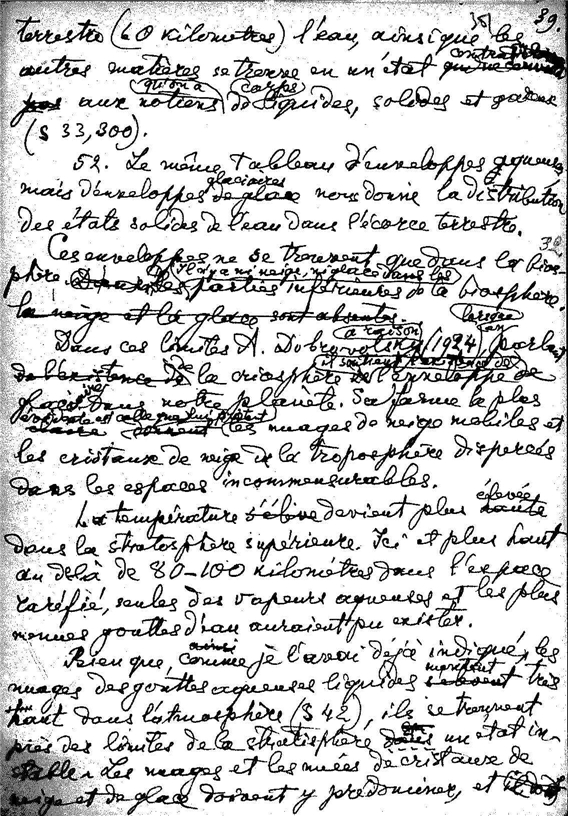 39.
terrestre (60 kilomètres) l'eau, ainsi que les
autres matières se trouve en un état
aux notions qu'on a de corps liquides, solides et gazeux
(§ 33, 300).
52. Le même tableau d'enveloppes aqueuses
mais d'enveloppes glaciaires nous donne la distribution
des états solides de l'eau dans l'écorce terrestre.
Ces enveloppes ne se trouvent que dans la bios-
phère. Il n'y a ni neige, ni glace dans les parties inférieures de la biosphère.
la neige et la glace sont absentes.
Dans ces limites A. Dobrovolsky (1924) a raison lorsqu'on parle
de l'existence de la criosphère de l'enveloppe de
glace notre planète. Sa forme la plus
évidente est celle que lui prêtent les nuages de neige mobiles et
les cristaux de neige de la troposphère dispersés
dans les espaces incommensurables.
La température devient plus élevée
dans la stratosphère supérieure. Ici et plus haut
au delà de 80-100 kilomètres dans l'espace
raréfié, seules des vapeurs aqueuses et les plus
menues gouttes d'eau auraient pu exister.
Bien que, ainsi je l'avai déjà indiqué, les
nuages des gouttes aqueuses liquides montent très
haut dans l'atmosphère (§ 42), ils se trouvent
près des limites de la stratisphère un état in-
stable. Les nuages et les nuées de cristaux de
neige et de glace doivent y prédominer, et